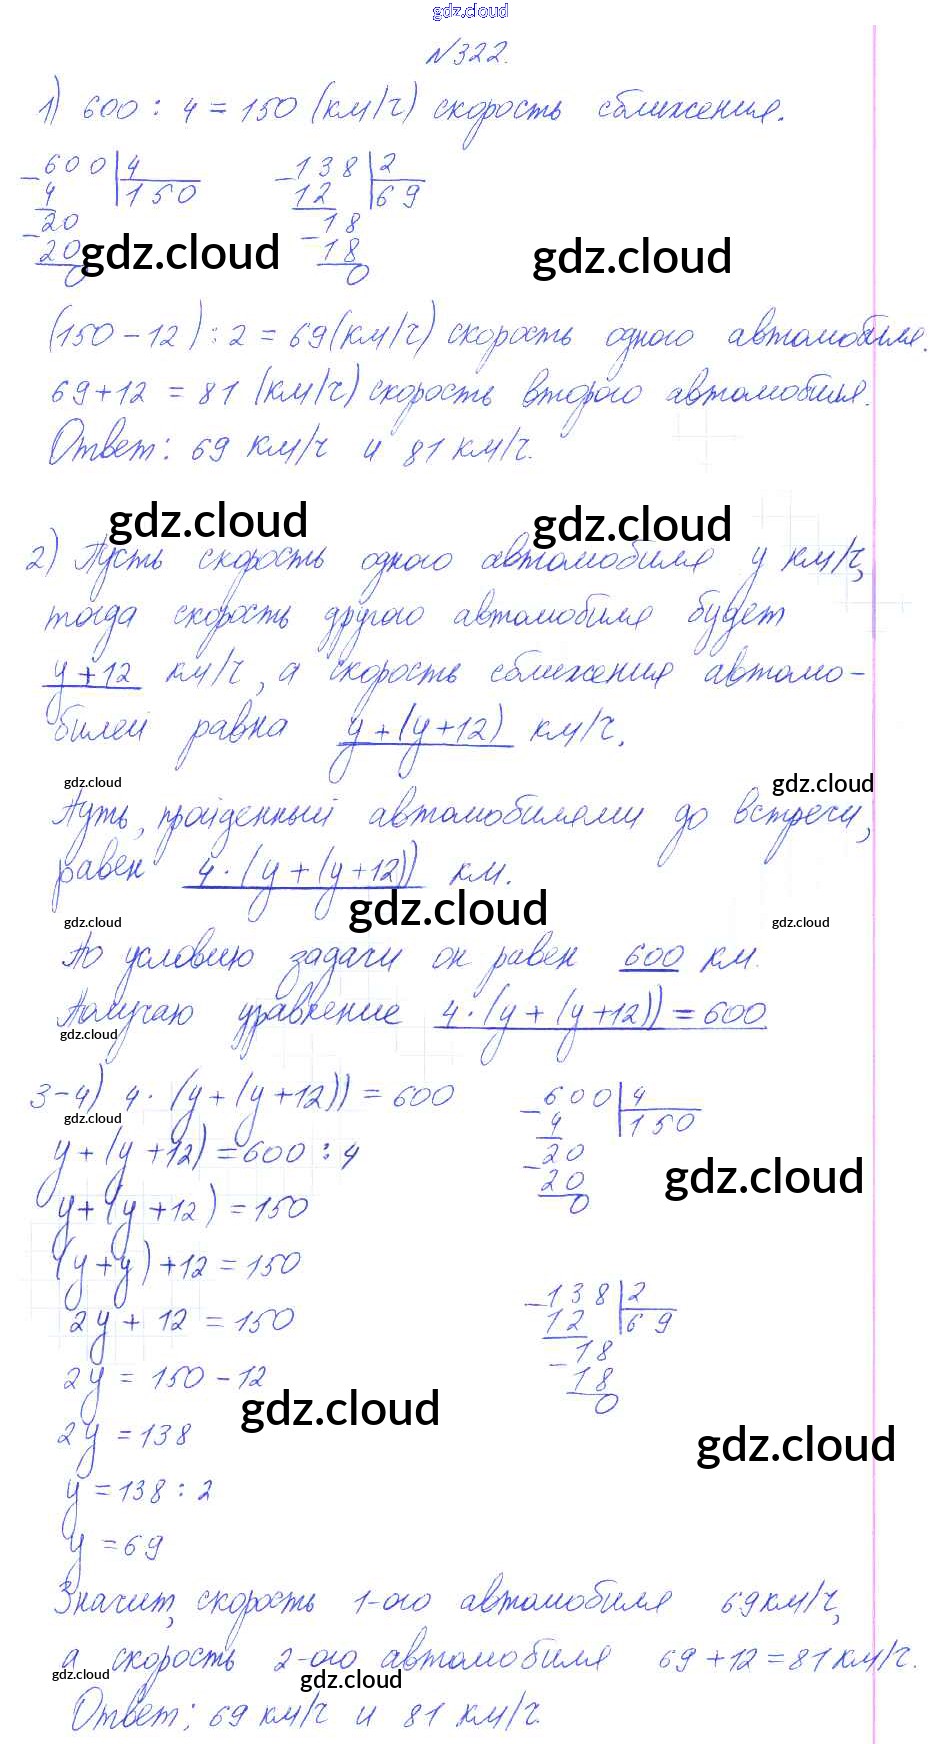 gdz.cloud
№322.
1) 600 : 4 = 150 (км/ч) скорость сближения.
600 | 4 138 | 2
4 150 12 69
20 18
20 18
0 0
gdz.cloud gdz.cloud
(150 - 12) : 2 = 69 (км/ч) скорость одного автомобиля.
69 + 12 = 81 (км/ч) скорость второго автомобиля.
Ответ: 69 км/ч и 81 км/ч.
gdz.cloud gdz.cloud
2) Пусть скорость одного автомобиля y км/ч,
тогда скорость другого автомобиля будет
y + 12 км/ч, а скорость сближения автомо-
билей равна y + (y + 12) км/ч.
gdz.cloud gdz.cloud
Путь, пройденный автомобилями до встречи,
равен 4 · (y + (y + 12)) км.
gdz.cloud
gdz.cloud gdz.cloud
По условию задачи он равен 600 км.
Получаю уравнение 4 · (y + (y + 12)) = 600
gdz.cloud
3-4) 4 · (y + (y + 12)) = 600
600 | 4
4 150
20
20
0
gdz.cloud
y + (y + 12) = 600 : 4
gdz.cloud
y + (y + 12) = 150
(y + y) + 12 = 150
138 | 2
12 69
18
18
0
2y + 12 = 150
2y = 150 - 12
gdz.cloud
2y = 138
gdz.cloud
y = 138 : 2
y = 69
Значит, скорость 1-ого автомобиля 69 км/ч,
а скорость 2-ого автомобиля 69 + 12 = 81 км/ч.
gdz.cloud gdz.cloud
Ответ: 69 км/ч и 81 км/ч.